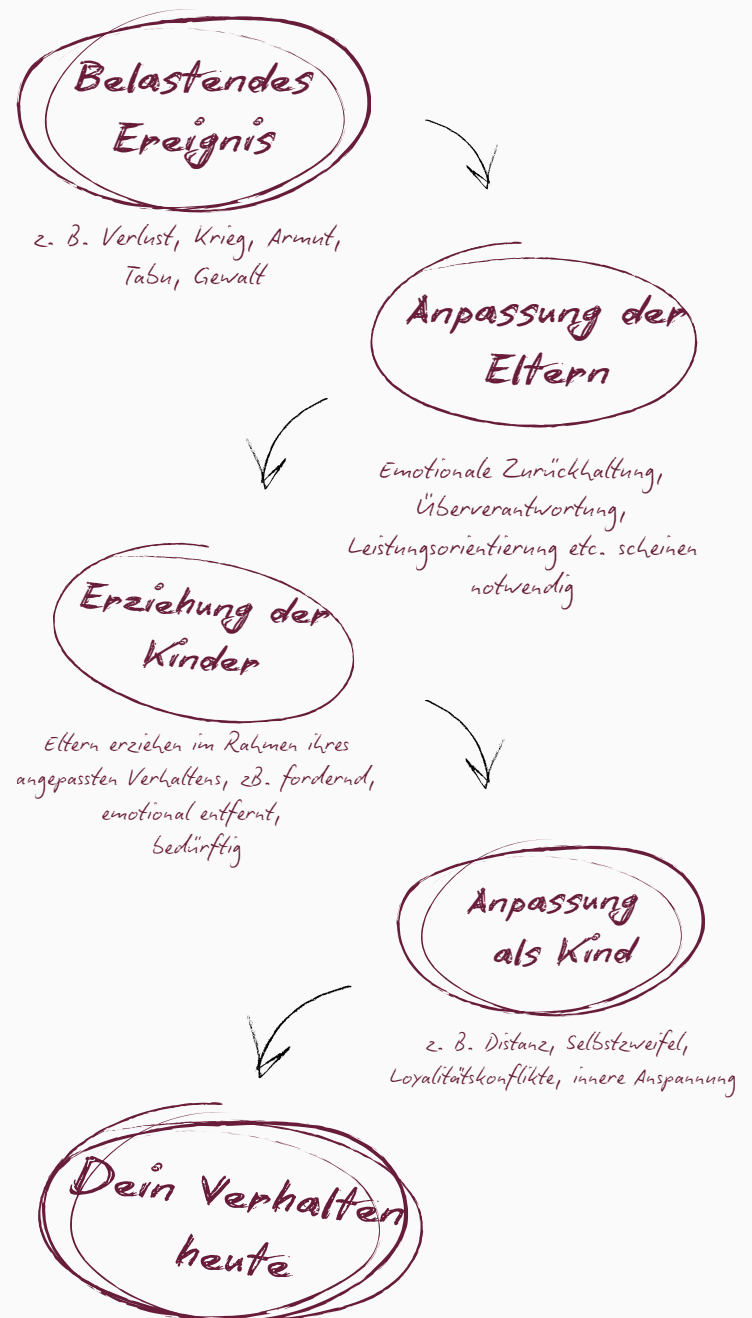 Belastendes
Ereignis
z. B. Verlust, Krieg, Armut,
Tabu, Gewalt
Anpassung der
Eltern
Emotionale Zurückhaltung,
Überverantwortung,
Leistungsorientierung etc. scheinen
notwendig
Erziehung der
Kinder
Eltern erziehen im Rahmen ihres
angepassten Verhaltens, zB. fordernd,
emotional entfernt,
bedürftig
Anpassung
als Kind
z. B. Distanz, Selbstzweifel,
Loyalitätskonflikte, innere Anspannung
Dein Verhalten
heute